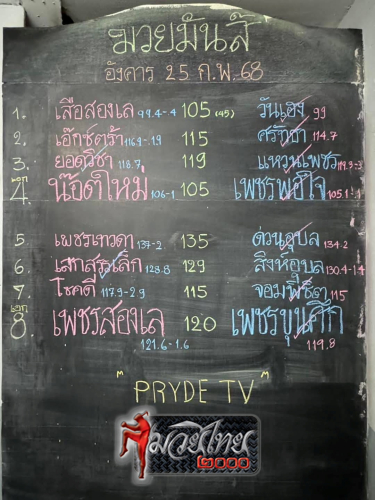 มวยมันส์
อังคาร 25 ก.พ. 68
1. เสือสองเล 99.4-4 105 (45) วันเฮง 99
2. เอ๊กซ์ตร้า 116.9-.19 115 ศรัทธา 114.7
3. ยอดวิชา 118.7 119 แหวนเพชร 119.3-3
4. น๊อตใหม่ 106-1 105 เพชรพอใจ 105.1-.1
5. เพชรเทวดา 137-2 135 ด่วนอุบล 134-2
6. เสกสรรเล็ก 128.8 129 สิงห์อุบล 130.4-1.4
7. โชคดี 117.9-2.9 115 จอมพิชิต 115
เอก 8. เพชรสองเล 121.6-1.6 120 เพชรขุนศึก 119.8
"PRYDE TV"
มวยไทย
๒๐๐๐